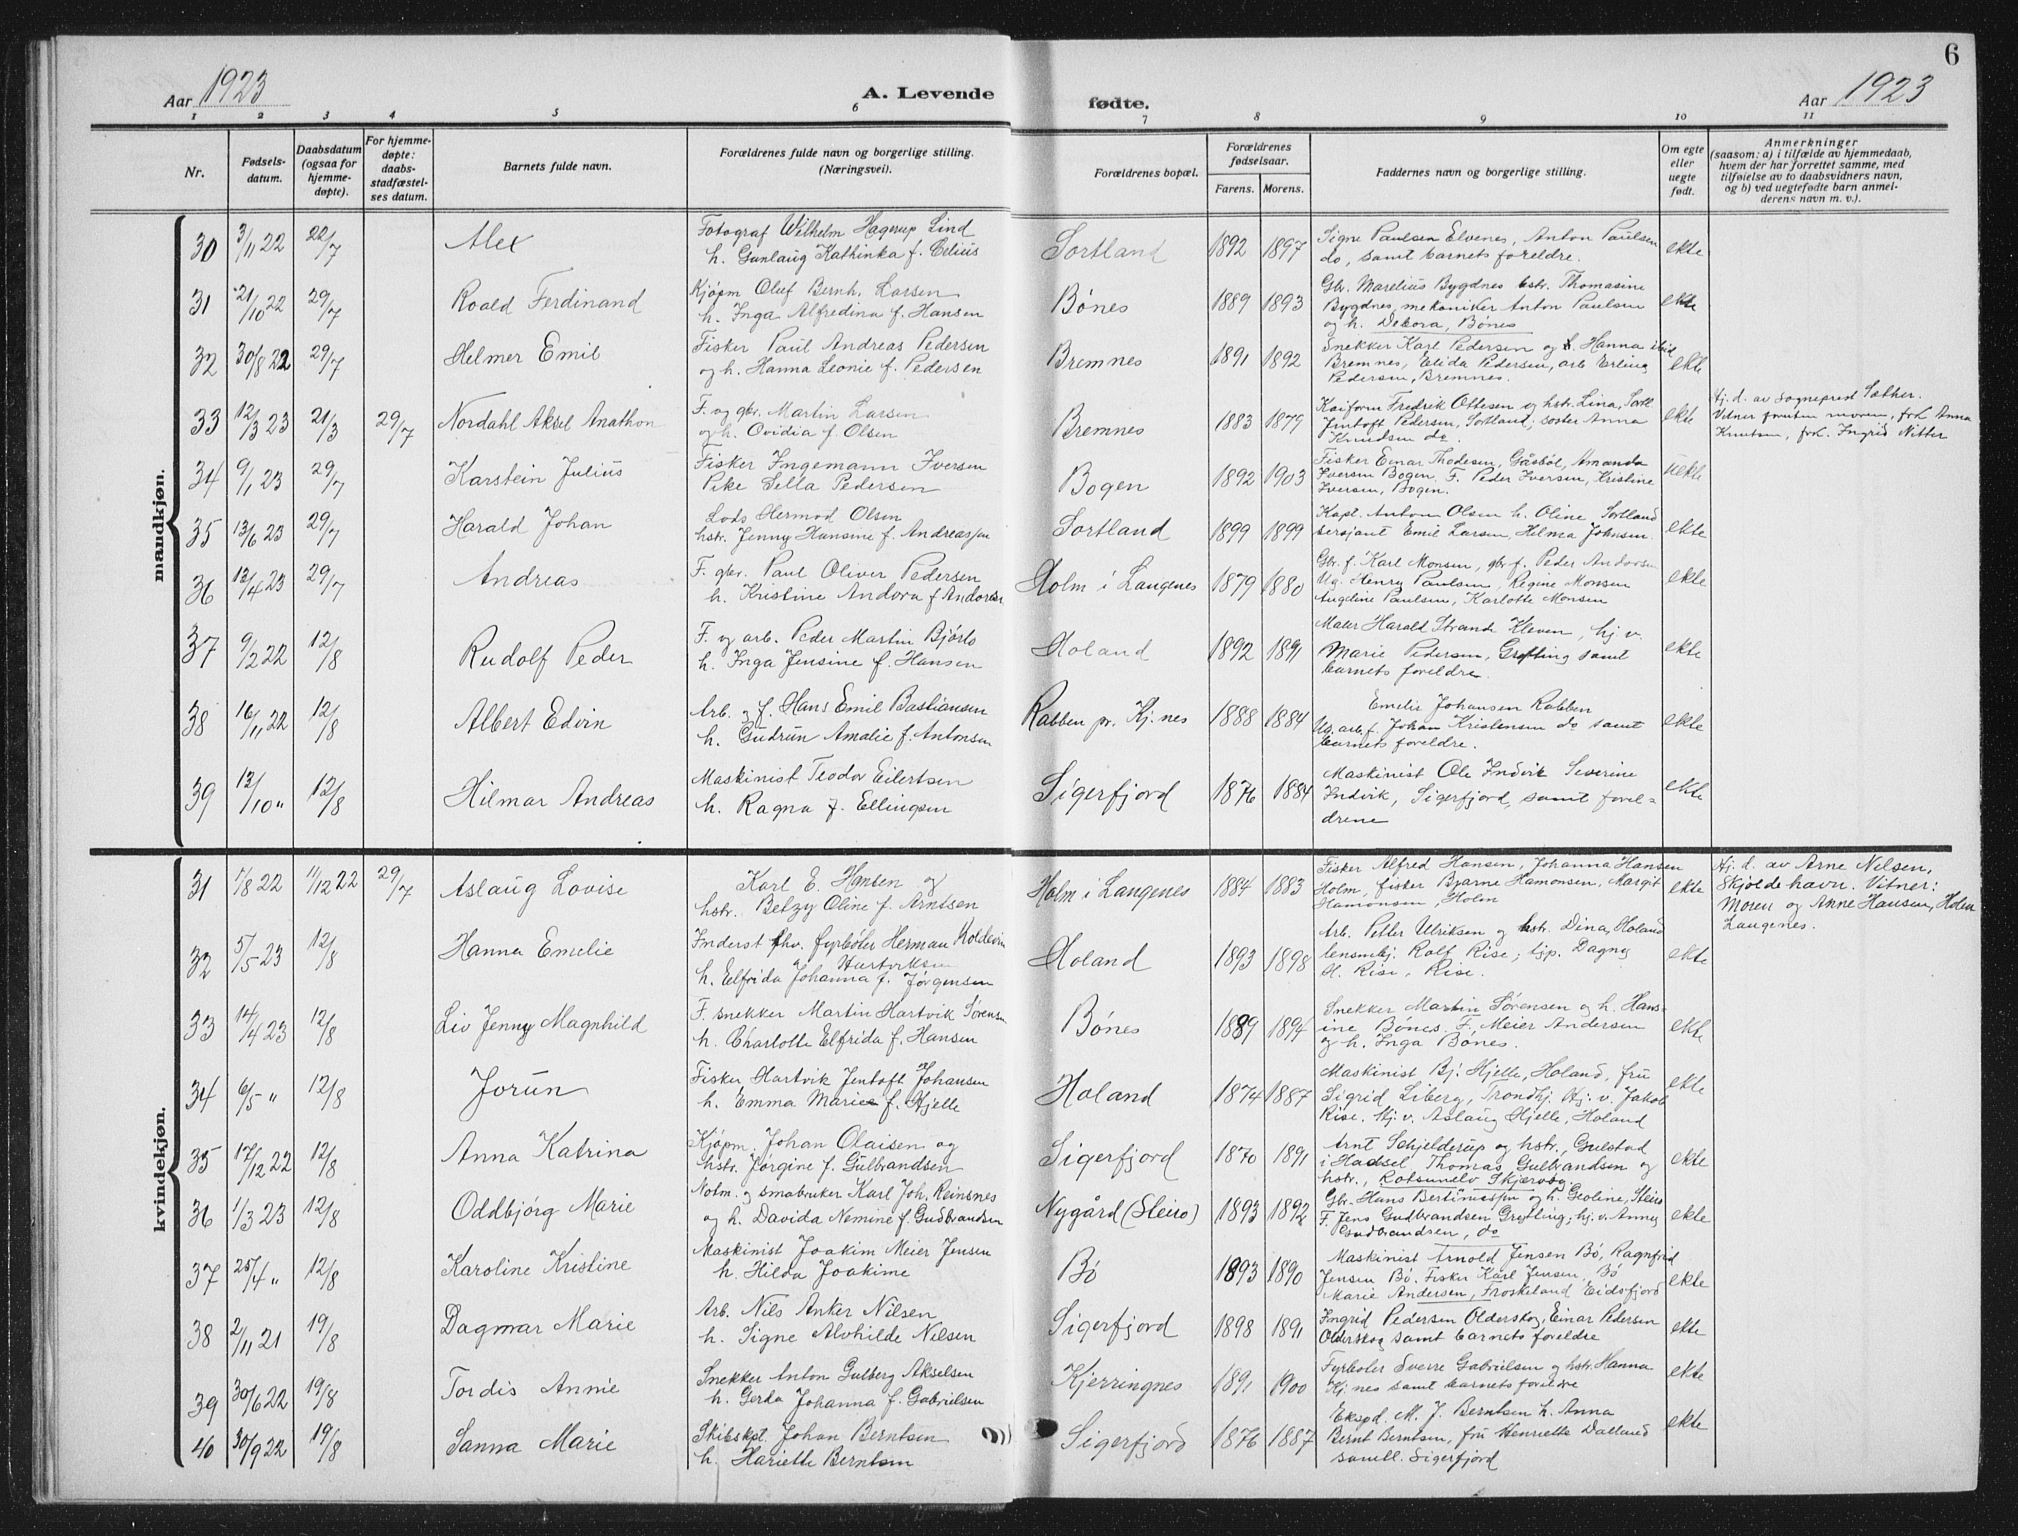 6
Aar 1923 A. Levende fødte. Aar 1923
1 2 3 4 5 6 7 8 9 10 11
Nr.
Fødsels-
datum.
Daabsdatum
(ogsaa for
hjemme-
døpte).
For hjemme-
døpte:
daabs-
stadfæstel-
ses datum.
Barnets fulde navn.
Forældrenes fulde navn og borgerlige stilling.
(Næringsvei).
Forældrenes bopæl.
Forældrenes
fødselsaar.
Farens. Morens.
Faddernes navn og borgerlige stilling.
Om egte
eller
uegte
født.
Anmerkninger
(saasom: a) i tilfælde av hjemmedaab,
hvem der har forrettet samme, med
tilføielse av to daabsvidners navn,
og b) ved uegtefødte barn anmel-
derens navn m. v.).
mandkjøn.
30 3/11 22 22/7 Alex
Fotograf Wilhelm Hagerup Lind
h. Gunlaug Kathinka f. Celius
Sortland 1892 1897
Signe Paulsen Elvenes, Anton Paulsen
do, samt barnets foreldre.
ekte
31 21/10 22 29/7 Roald Ferdinand
Kjøpm Oluf Bernh. Larsen
h. Inga Alfredina f. Hansen
Bønes 1889 1893
Gbr. Marelius Bygdnes hstr. Thomasine
Bygdnes, mekaniker Anton Paulsen
og h. Debora, Bønes
ekte
32 30/8 22 29/7 Helmer Emil
Fisker Paul Andreas Pedersen
og h. Hanna Leonie f. Pedersen
Bremnes 1891 1892
Snekker Karl Pedersen og h. Hanna ibid
Bremnes, Elida Pedersen, arb Erling
Pedersen, Bremnes.
ekte
33 12/3 23 21/3 29/7 Nordahl Aksel Anathon
F. og gbr. Martin Larsen
og h. Ovidia f. Olsen
Bremnes 1883 1879
Kaiform Fredrik Ottesen og hstr. Lina, Sortl
Jentoft Pedersen, Sortland; søster Anna
Knudsen do.
ekte
Hj. d. av Sogneprest Sæther.
Vitner foruten moren, frk Anna
Knutsen, frk. Ingrid Nitter
34 9/1 23 29/7 Karstein Julius
Fisker Ingemann Iversen
Pike Sella Pedersen
Bogen 1892 1903
Fisker Einar Thodesen, Gåsbøl, Amanda
Iversen Bogen. F. Peder Iversen, Kristine
Iversen, Bogen.
uekte
35 13/6 23 29/7 Harald Johan
Lods Hermod Olsen
hstr. Jenny Hansine f. Andreassen
Sortland 1899 1899
Kapt. Anton Olsen h. Oline Sortland
sersjant Emil Larsen, Helma Johnsen.
ekte
36 12/4 23 29/7 Andreas
F. gbr. Paul Oliver Pedersen
h. Kristine Andora f Andorsen
Holm i Langenes 1879 1880
Gbr. f. Karl Monsen, gbr f. Peder Andorsen
Ug. Henry Paulsen, Regine Monsen
Angeline Paulsen, Karlotte Monsen
ekte
37 9/2 22 12/8 Rudolf Peder
F. og arb. Peder Martin Bjørlo
h. Inga Jensine f. Hansen
Holand 1892 1891
Maler Harald Strande Kleven, hj v.
Marie Pedersen, Grytting samt
barnets foreldre.
ekte
38 16/11 22 12/8 Albert Edvin
Arb. og f. Hans Emil Bastiansen
h. Gudrun Amalie f. Antonsen
Rabben pr. Kj.nes 1888 1884
Emelie Johansen Rabben
Ug. arb. f. Johan Kristensen do samt
barnets foreldre.
ekte
39 12/10 " 12/8 Hilmar Andreas
Maskinist Teodor Eilertsen
h. Ragna f. Ellingsen
Sigerfjord 1876 1884
Maskinist Ole Indvik Severine
Indvik, Sigerfjord, samt forel-
drene
ekte
kvindekjøn.
31 1/8 22 11/12 22 29/7 Aslaug Lovise
Karl E. Hansen og
hstr. Betzy Oline f. Arntsen
Holm i Langenes 1884 1883
Fisker Alfred Hansen, Johanna Hansen
Holm, fisker Bjarne Hamonsen, Margit
Hamonsen, Holm
ekte
Hj. d. av Arne Nilsen,
Skjoldehavn. Vitner:
Moren og Anne Hansen, Holm
Langenes.
32 5/5 23 12/8 Hanna Emelie
Inderst fhv. fyrbøter Herman Koldevin
Hartviksen
h. Elfrida Johanna f. Jørgensen
Holand 1893 1898
Arb. Petter Ulriksen og hstr. Dina, Holand
lensmbtj. Rolf Rise; tjp. Dagny
H. Rise, Rise.
ekte
33 14/4 23 12/8 Liv Jenny Magnhild
F. snekker Martin Hartvik Sørensen
h. Charlotte Elfrida f. Hansen
Bønes 1889 1894
Snekker Martin Sørensen og h. Hans-
ine Bønes. F. Meier Andersen
og h. Inga Bønes.
ekte
34 6/5 " 12/8 Jorun
Fisker Hartvik Jentoft Johansen
h. Emma Marie f. Hjelle
Holand 1874 1887
Maskinist Bj. Hjelle, Holand, fru
Sigrid Liberg, Trondhj. Hj. v. Jakob
Rise. Hj. v. Aslaug Hjelle, Holand
ekte
35 17/12 22 12/8 Anna Katrina
Kjøpm. Johan Olaisen og
hstr. Jørgine f. Gulbrandsen
Sigerfjord 1870 1891
Arnt Schjelderup og hstr., Gulstad
i Hadsel Thomas Gulbrandsen og
hstr., Rotsundelv Skjervøy
ekte
36 1/3 23 12/8 Oddbjørg Marie
Notm. og småbruker Karl Joh. Reinsnes
og h. Davida Nemine f. Gudbrandsen
Nygård (Steiro) 1893 1892
Gbr. Hans Bertinussen og h. Geoline, Steiro
F. Jens Gudbrandsen Grytting; hj. v. Anney
Gudbrandsen, do
ekte
37 25/4 " 12/8 Karoline Kristine
Maskinist Joakim Meier Jensen
h. Hilda Joakime
Bø 1893 1890
Maskinist Arnold Jensen Bø, Ragnfrid
Jensen Bø. Fisker Karl Jensen, Bø
Marie Andersen, Froskeland Eidsfjord
ekte
38 2/11 21 19/8 Dagmar Marie
Arb. Nils Anker Nilsen
h. Signe Alvhilde Nilsen
Sigerfjord 1898 1891
Ingrid Pedersen Olderskog, Einar Pedersen
Olderskog samt barnets foreldre
ekte
39 30/6 22 19/8 Tordis Annie
Snekker Anton Gulberg Akselsen
h. Gerda Johanna f. Gabrielsen
Kjerringnes 1891 1900
Fyrbøter Sverre Gabrielsen og hstr. Hanna
Kj.nes samt barnets foreldre
ekte
40 30/9 22 19/8 Sanna Marie
Skibskpt. Johan Berntsen
h. Hariette Berntsen
Sigerfjord 1876 1887
Ekspd. M. J. Berntsen h. Anna
Bernt Berntsen, fru Henriette Dalland
samtl. Sigerfjord
ekte